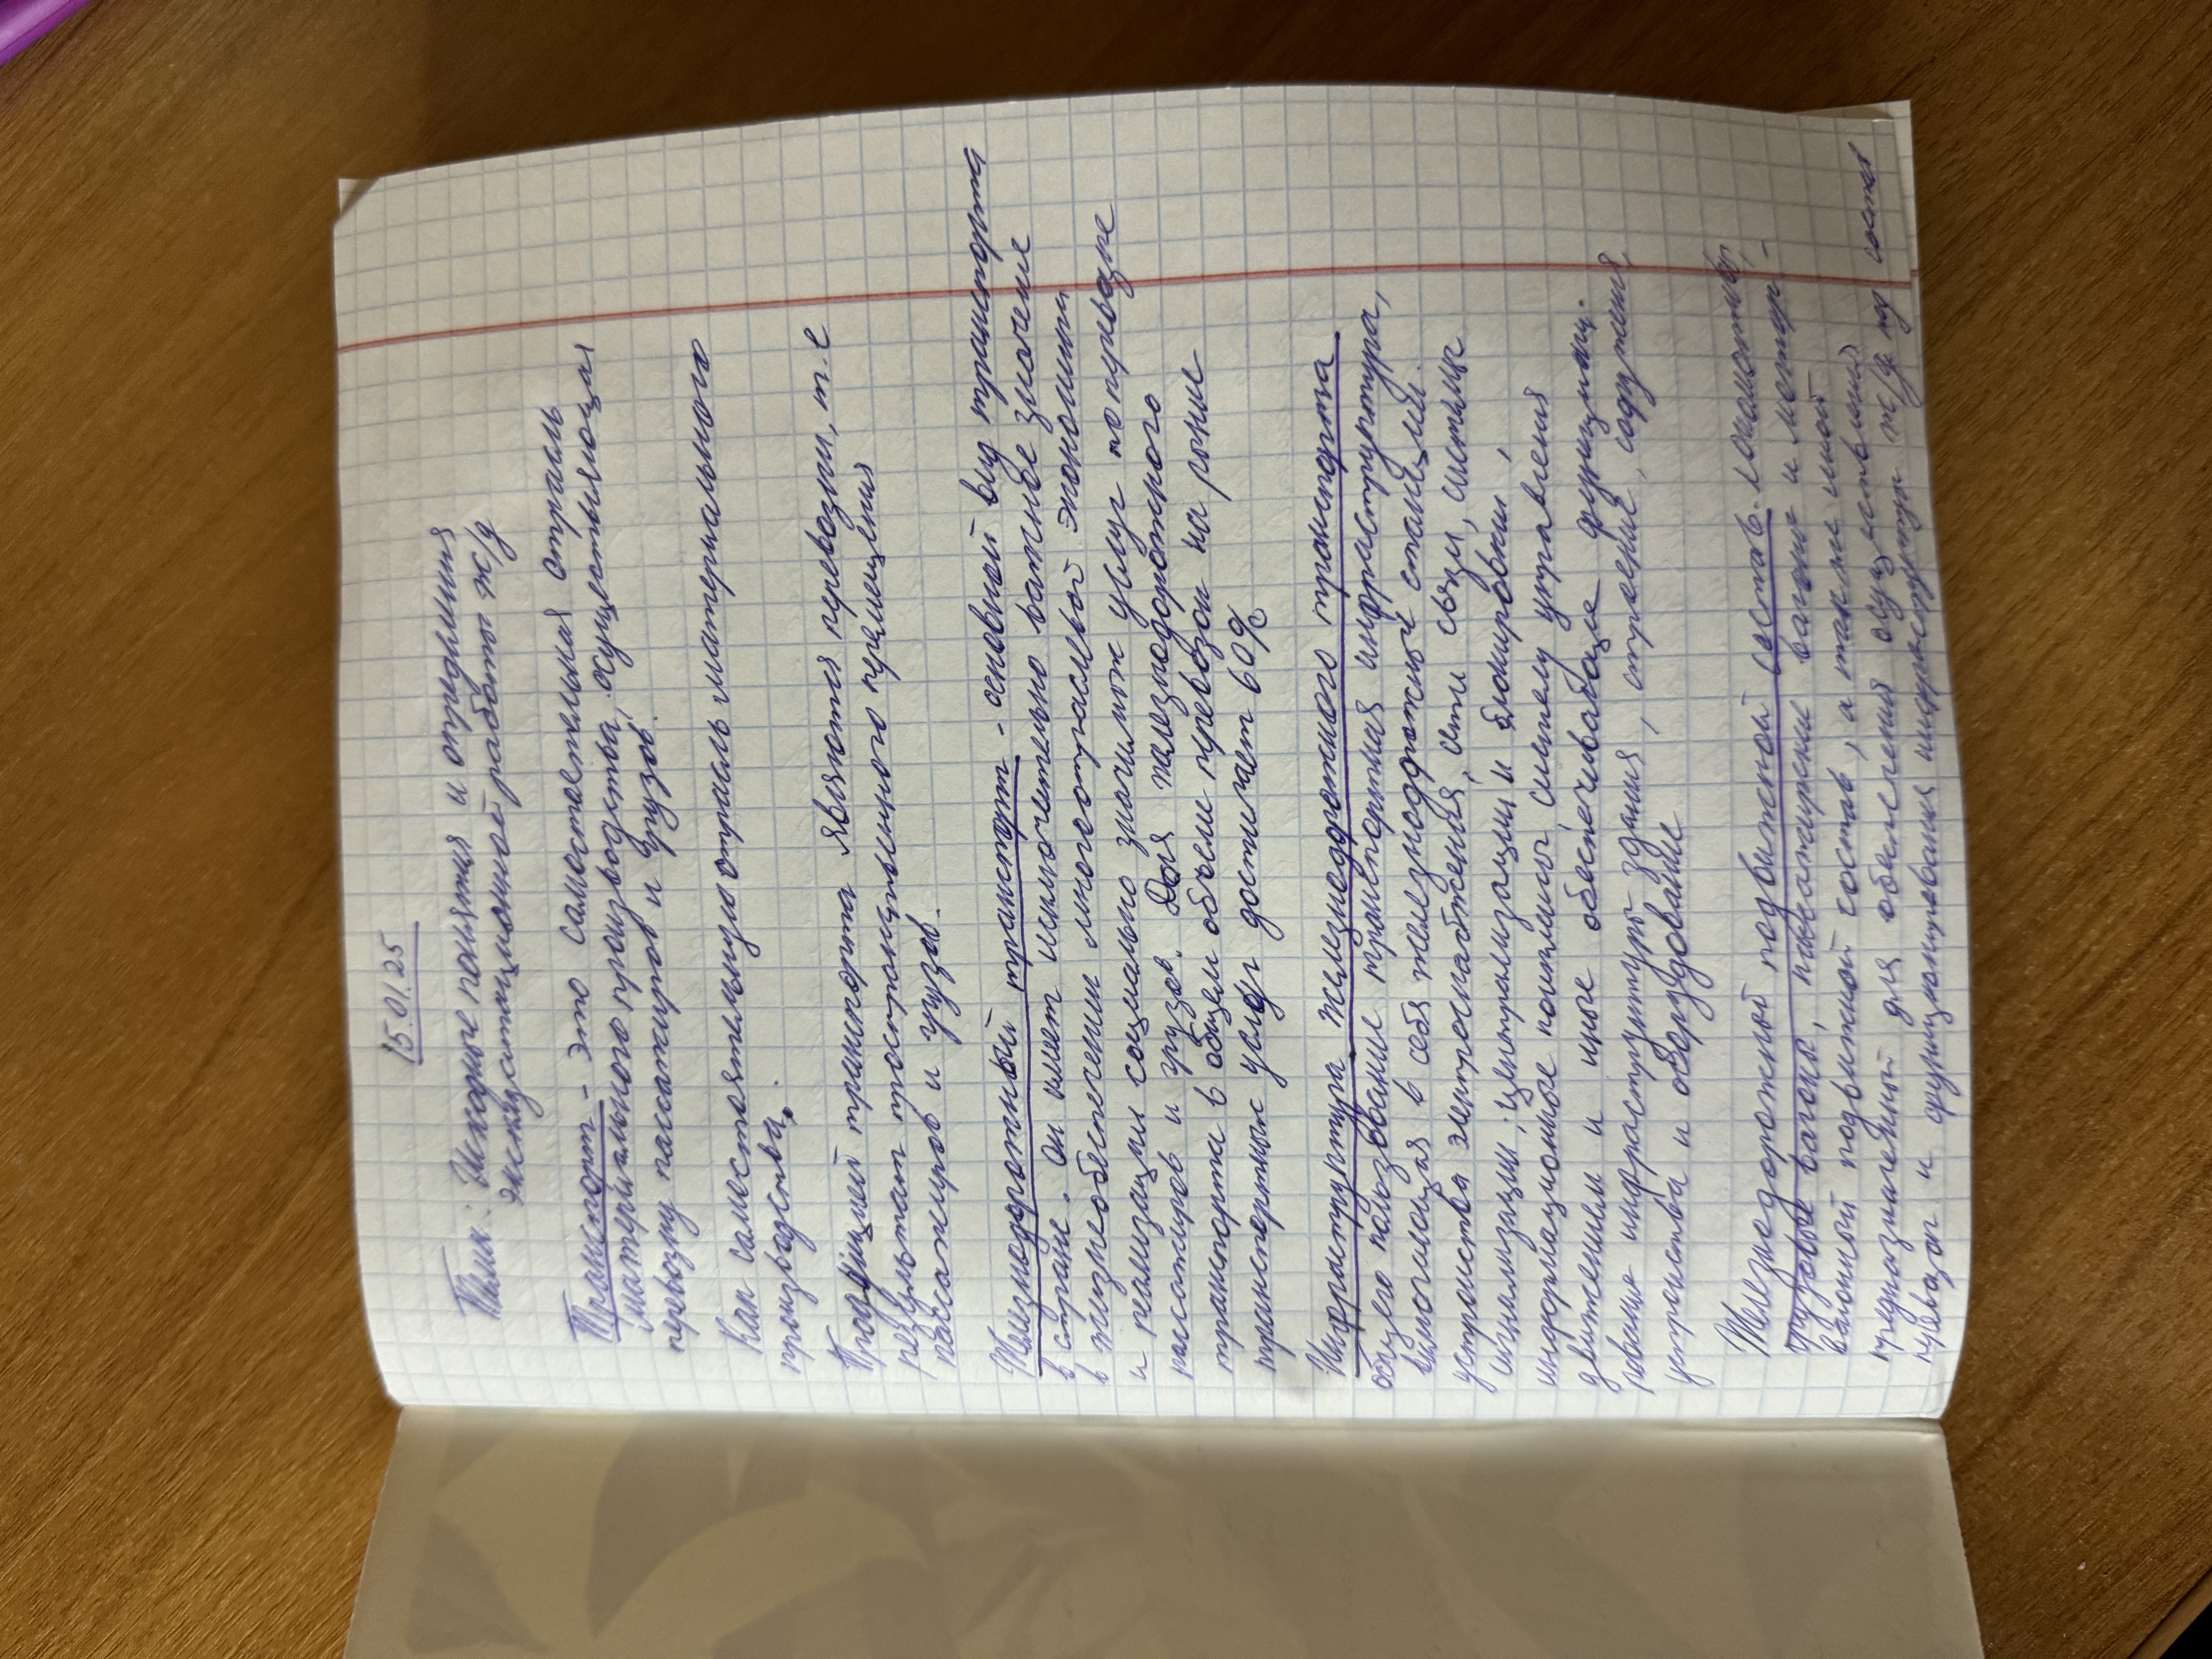 15.01.25
Тема: Исходные понятия и определения
эксплуатационной работы ж/д
Транспорт - это самостоятельная отрасль
материального производства, осуществляющая
перевозку пассажиров и грузов.
Как самостоятельную отрасль материального
производства,
Продукцией транспорта являются перевозки, т.е
результат пространственного перемещения
пассажиров и грузов.
Железнодорожный транспорт - основной вид транспорта
в стране. Он имеет исключительно важное значение
в жизнеобеспечении многоотраслевой экономики
и реализации социально значимых услуг по перевозке
пассажиров и грузов. Доля железнодорожного
транспорта в общем объеме перевозок на рынке
транспортных услуг достигает 60%
Инфраструктура железнодорожного транспорта
общего пользование транспортная инфраструктура,
включающая в себя железнодорожные станции.
устройства электроснабжения, сети связи, системы
сигнализации, централизации и блокировки,
информационные комплексы систему управления
движением и иные обеспечивающие функцион.
рование инфраструктуры здания, строение, сооружения,
устройства и оборудование
Железнодорожный подвижной состав - локомотивы,
грузовые вагоны, пассажирские вагоны и мотор-
вагонный подвижной состав, а также иной
предназначенный для обеспечения осуществления
перевозок и функционирования инфраструктур ж/д под состав